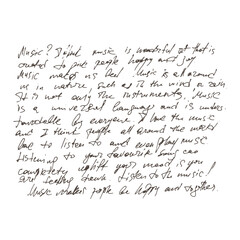 Music? I think music is wonderful art that is
created to give people happy and joy
Music makes us feel. Music is all around
us in nature, such as in the wind or rain
It is not only the instruments, Music
is a universal language and is unders-
tandable by everyone. I love the music
and I think people all around the world
love to listen to and even play music
Listening to your favourite song can
completely uplift your mood is you
are feeling down. Listen to the music!
Music makes people be happy and together.